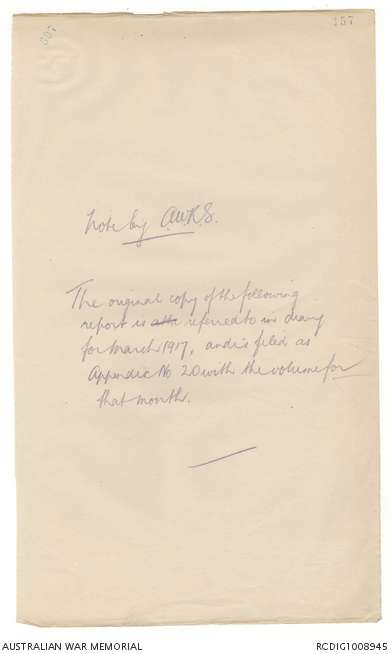 157
Note by A.W.R.S.
The original copy of the following
report is referred to in diary
for March 1917, and is filed as
Appendix No 20 with the volume for
that month.
AUSTRALIAN WAR MEMORIAL
RCDIG1008945